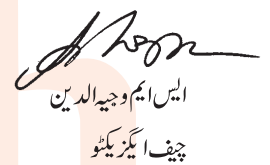 ایس ایم وجیہ الدین
چیف ایگزیکٹو